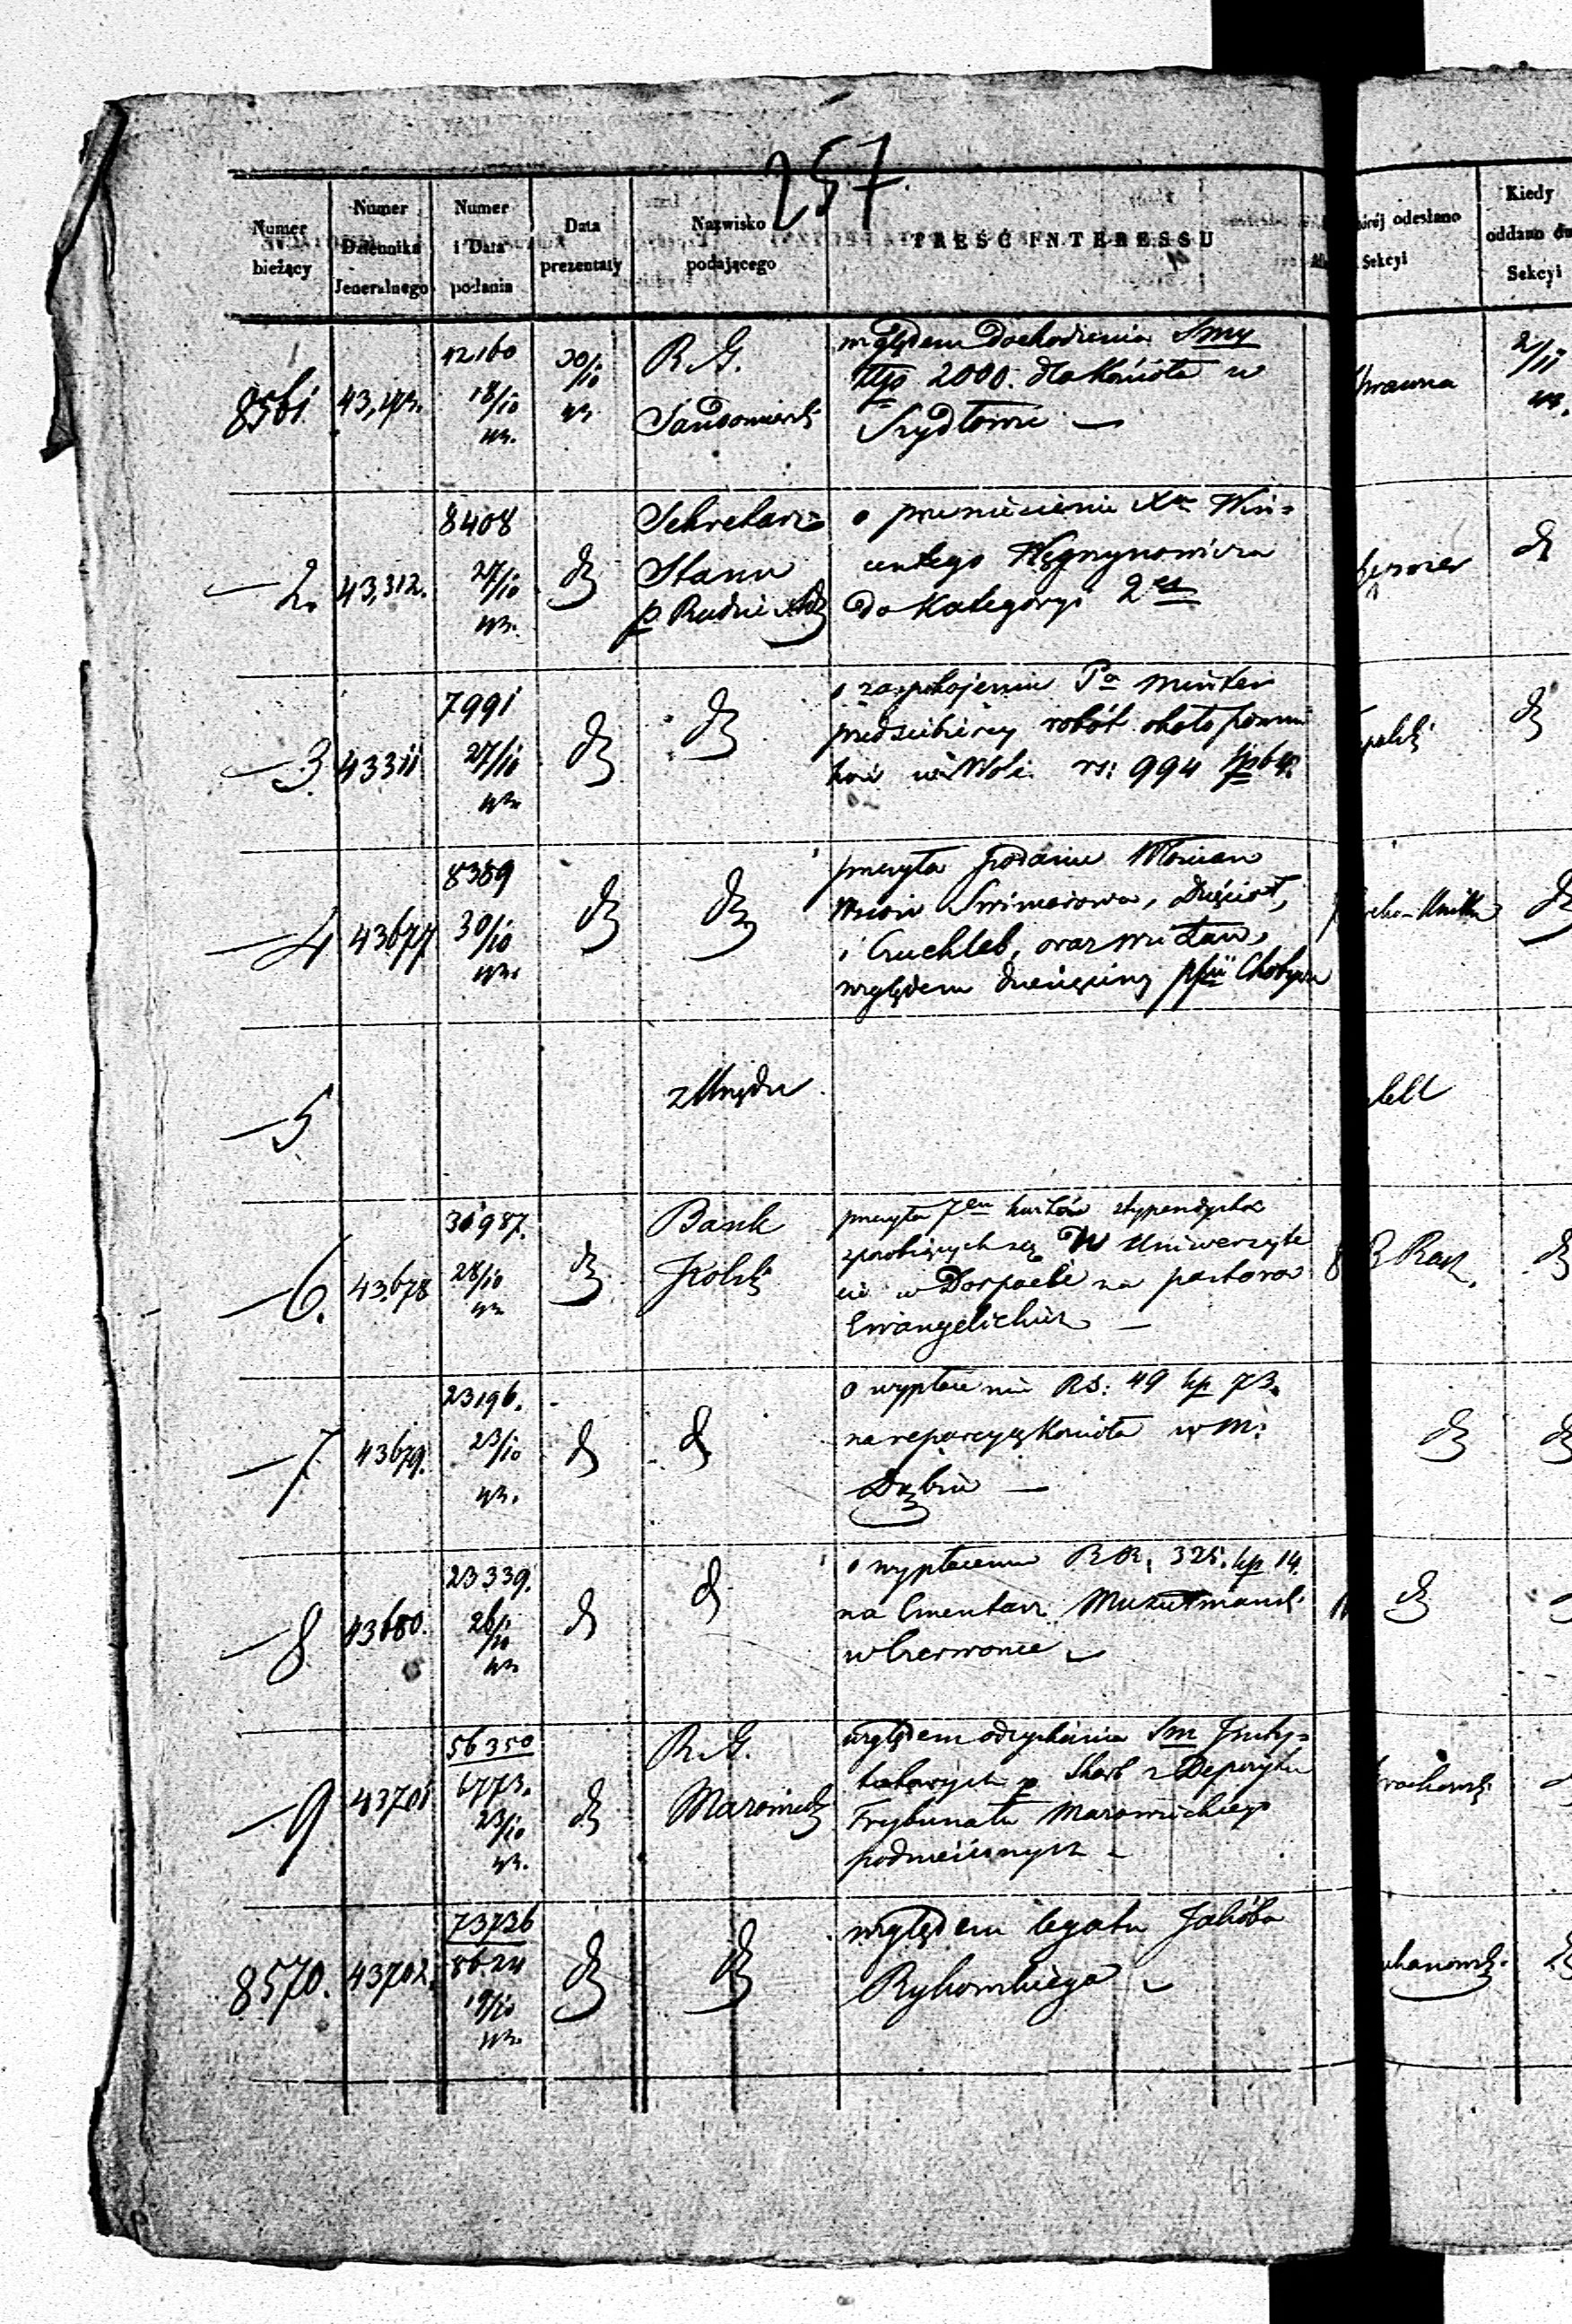 257.
Numer bieżący
Numer Dziennika Jeneralnego
Numer i Data podania
Data prezentaty
Nazwisko podającego
TREŚĆ INTERESSU
której odesłano Sekcyi
Kiedy oddano do Sekcyi
8561. 43,173. 42160 18/10 43. 30/10 43 R. G. Sandomiersk. względem dochodzenia Smy
złp 2000. dla Kościoła w
Szydłowie — 2/11 43.
— 2. 43,312. 8408 27/10 43. d° Sekretarz
Stanu o przeniesienie Xa Win=
centego Węgrzynowicza
do Kategoryi 2ej d°
— 3. 43311 7991 27/10 43. d° d° o zaspokojenie Pa Minter
przedsiębiercy robót około pomni
ków w Woli rs: 994 kp 64. d°
— 4 43677 8389 30/10 43. d° d° przesyła podanie Włościan
wsiów
i Czuchleb, oraz
względem dziesięciny d°
— 5 z Urzędu
— 6. 43.678 30987. 28/10 43 d° Bank
Polski przesyła 7em kwitów stypendystów
sposobiących się w Uniwersyte
cie w Dorpacie na pastorów
Ewangelickich — d°
— 7 43679. 23196. 23/10 43. d° d° o wypłacenie RS: 49 kp 73.
na reparacyą Kościoła w M:
Dąbiu — d° d°
— 8 43680. 23339. 26/10 43 d° d° o wypłacenie Rsr. 325. kp 14.
na Cmentarz Muzułmańsk.
w Czerwonce — d°
— 9 43701 56350 6773. 23/10 43. d° R. G.
Mazowieck względem odzyskania Sm
Skarb z Depozytu
Trybunału Mazowieckiego
podniesionych —
8570. 43702. 73736 8624 19/10 43. d° d° względem legatu Jakóba
Rykowskiego —